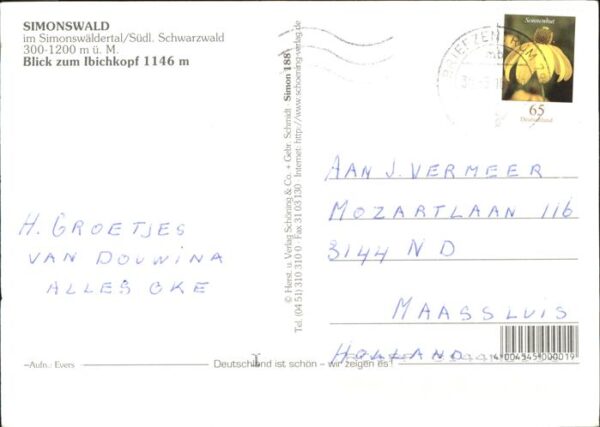 SIMONSWALD
im Simonswäldertal/Südl. Schwarzwald
300-1200 m ü. M.
Blick zum Ibichkopf 1146 m
H. GROETJES
VAN DOUWINA
ALLES OKE
~Aufn.: Evers
© Herst. u. Verlag Schöning & Co. + Gebr. Schmidt Simon 188
Tel. (04 51) 310 310 0 · Fax 31 03 130 · Internet: http://www.schoening-verlag.de
Deutschland ist schön – wir zeigen es!
BRIEFZENTRUM 79
Sonnenhut
65
Deutschland
AAN J. VERMEER
MOZARTLAAN 116
3144 ND
MAASSLUIS
HOLLAND
4 004545 000019